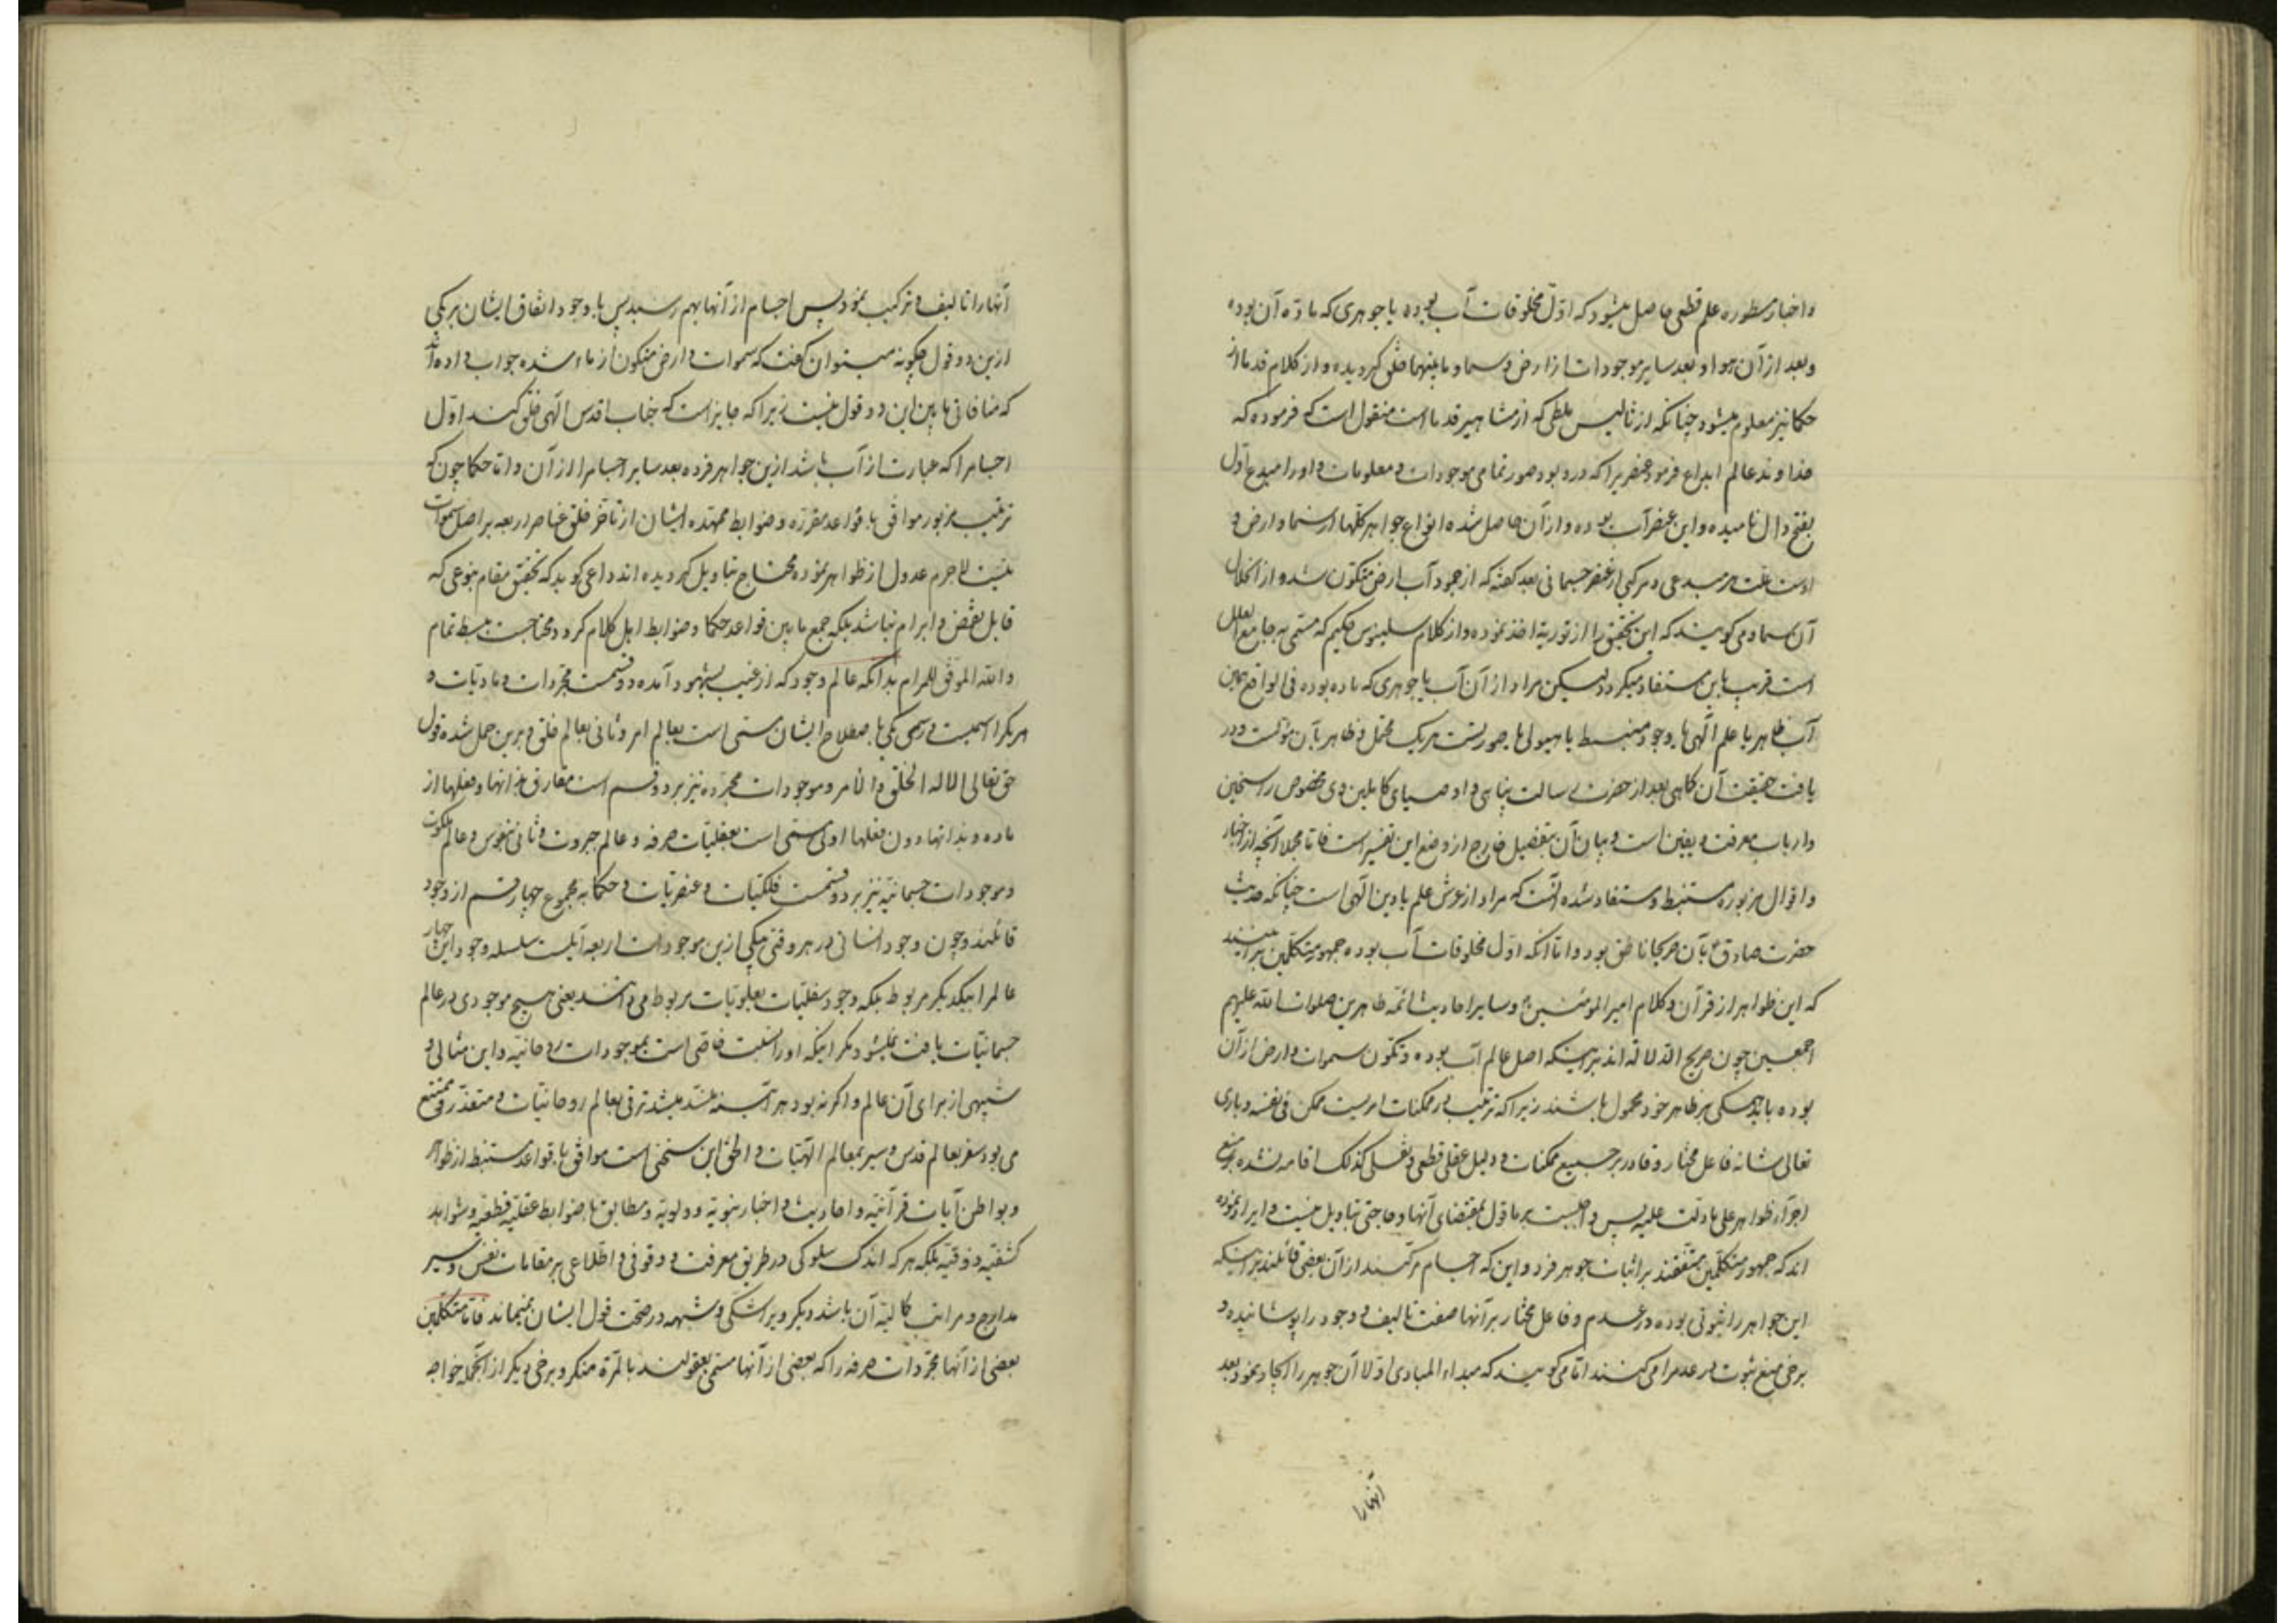 واخبار مسطوره علم قطعی حاصل میشود که اوّل مخلوقات آب بوده یا جوهری که مادّه آن بوده
وبعد از آن هوا و بعد سایر موجودات از ارض و سما و ما بینهما خلق کردیده و از کلام قدما از
حکما نیز معلوم میشود چنانکه از ثالیس ملطی که از مشاهیر قدما است منقول است که فرموده که
خداوند عالم ابداع فرمود عنصریرا که درو بود صور تمامی موجودات و معلومات و او را مبدع اوّل
بفتح دال نامیده و این عنصر آب بوده و از آن حاصل شده انواع جواهر کلّها از سما و ارض و
اوست علّت هر مبدعی و مرکبی از عنصر جسمانی بعد کفته که از جمود آب ارض متکوّن شد و از انحلال
آن سما و می کویند که این تحقیق را از توریة اخذ نموده و از کلام سلینوس حکیم که مسمّی به جامع العلل
است قریب باین مستفاد میکردد لیکن مراد از آن آب یا جوهری که ماده بوده فی الواقع همین
آب ظاهر یا علم الهی یا وجود منبسط یا هیولی یا صورتست هریک محتمل و ظاهر بآن مؤلست و در
یافت حقیقت آن کاهی بعد از حضرت رسالت پناهی و اوصیای کاملین وی مخصوص راسخین
و ارباب معرفت و یقین است و بیان آن بتفصیل خارج از وضع این تفسیر است فامّا مجملا آنچه از اخبار
و اقوال مزبوره مستنبط و مستفاد شده آنست که مراد از عرش علم یا دین الهی است چنانکه حدیث
حضرت صادق ع بآن صریحا ناطق بود و امّا آنکه اوّل مخلوقات آب بوده جمهور متکلّمین برآنند
که این ظواهر از قرآن و کلام امیر المؤمنین ع و سایر احادیث ائمّه طاهرین صلوات الله علیهم
اجمعین چون صریح الدّلاله اند بر اینکه اصل عالم آب بوده و تکوّن سموات و ارض از آن
بوده باید همکی بر ظاهر خود محمول باشند زیرا که ترتیب در ممکنات امریست ممکن فی نفسه و باری
تعالی شانه فاعل مختار و قادر بر جمیع ممکنات و دلیل عقلی قطعی و نقلی کذلک اقامه نشده بر منع
اجرآء ظواهر علی ما دلّت علیه پس واجبست بر ما قول بمقتضای آنها و حاجتی بتاویل نیست و ایراد نموده
اند که جمهور متکلّمین متّفقند بر اثبات جوهر فرد و این که اجسام مرکّبند از آن بعضی قائلند بر اینکه
این جواهر را ثبوتی بوده در عدم و فاعل مختار بر آنها صفت تالیف و وجود را پوشانیده و
برخی منع ثبوت در عدم را می کنند امّا می کویند که مبداء المبادی اوّلا آن جوهر را ایجاد نمود و بعد
آنها را
آنها را تالیف و ترکیب نمود پس اجسام از آنها بهم رسید پس با وجود اتفاق ایشان بر یکی
ازین دو قول چکونه میتوان کفت که سموات و ارض متکون از ماء شده جواب داده اند
که منافاتی ما بین این دو قول نیست زیرا که جایز است که جناب اقدس الهی خلق کند اوّل
اجسام را که عبارت از آب باشد ازین جواهر فرده بعد سایر اجسام را از آن و امّا حکما چون که
ترتیب مزبور موافق با قواعد مقرّره و ضوابط ممهّده ایشان از تاخّر خلق عناصر اربعه بر اصل سموات
نیست لاجرم عدول از ظواهر نموده محتاج بتاویل کردیده اند داعی کوید که تحقیق مقام بنوعی که
قابل نقض و ابرام نباشد بلکه جمع ما بین قواعد حکما و ضوابط اهل کلام کردد محتاجست ببسط تمام
والله الموفّق للمرام بدانکه عالم وجود که از غیب بشهود آمده دو قسمست مجرّدات و مادیّات و
هریکرا اسمیست و رسمی یکی باصطلاح ایشان مسمّی است بعالم امر و ثانی بعالم خلق و برین حمل شده قول
حق تعالی الا له الخلق والامر و موجودات مجرّده نیز بر دو قسم است مفارق بذاتها و فعلها از
ماده و بذاتها دون فعلها اولی مسمّی است بعقلیّات صرفه و عالم جبروت و ثانی بنفوس و عالم ملکوت
و موجودات جسمانیّه نیز بر دو قسمست فلکیّات و عنصریّات و حکما به مجموع چهار قسم از وجود
قائلند و چون وجود انسانی در هر وقتی یکی ازین موجودات اربعه آنست سلسله وجود این چهار
عالم را بیکدیکر مربوط بلکه وجود سفلیّات بعلویّات مربوط می دانند یعنی هیچ موجودی در عالم
جسمانیّات یافت نمیشود مکر اینکه او را نسبت خاصّی است بموجودات روحانیّه و این مثالی و
شبیهی از برای آن عالم و اکر نه بود هر آینه منسد میشد ترقی بعالم روحانیّات و متعذّر و ممتنع
می بود سفر بعالم قدس و سیر بمعالم الهیّات و الحق این سخنی است موافق با قواعد مستنبط از ظواهر
و بواطن آیات قرآنیّه و احادیث و اخبار نبویّه و ولویّه و مطابق با ضوابط عقلیّه قطعیّه و شواهد
کشفیّه و ذوقیّه بلکه هرکه اندک سلوکی در طریق معرفت و وقوفی و اطّلاعی بر مقامات نفس و سیر
مدارج و مراتب کمالیّه آن باشد دیکر ویرا شکی و شبهه در صحّت قول ایشان نمیماند فامّا متکلّمین
بعضی از آنها مجرّدات صرفه را که بعضی از آنها مسمّی بعقولند بالمرّة منکر و برخی دیکر از آنجمله خواجه